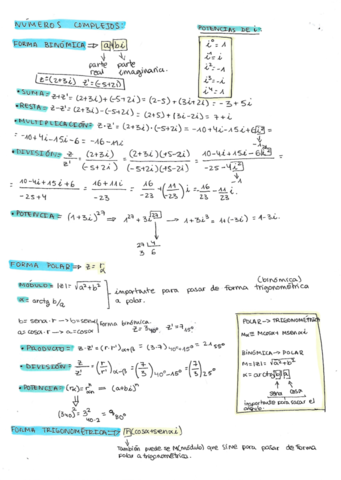 NÚMEROS COMPLEJOS:
POTENCIAS DE i:
i⁰ = 1
i¹ = i
i² = -1
i³ = -i
i⁴ = 1
FORMA BINÓMICA ⇒ a+bi
parte real
parte imaginaria.
z=(2+3i) z'=(-5+2i)
• SUMA: z+z' = (2+3i)+(-5+2i) = (2-5)+(3i+2i) = -3+5i
• RESTA: z-z' = (2+3i)-(-5+2i) = (2+5)+(3i-2i) = 7+i
• MULTIPLICACIÓN: z·z' = (2+3i)·(-5+2i) = -10+4i-15i+6i² =
= -10+4i-15i-6 = -16-11i
-1
• DIVISIÓN: z/z' = (2+3i)/(-5+2i) = (2+3i)(+5-2i)/(-5+2i)(+5-2i) = 10-4i+15i-6i²/-25-4i²
-1
= 10-4i+15i+6/-25+4 = 16+11i/-23 = 16/-23 + (11/-23)i = -16/23 - 11/23 i.
• POTENCIA = (1+3i)²⁷ → 1²⁷+3i²⁷ → 1+3i³ = 1+(-3i) = 1-3i.
27 | 4
3 6
FORMA POLAR ⇒ z = rα
MÓDULO = |z| = √a²+b²
α = arctg b/a
importante para pasar de forma (binómica) trigonométrica a polar.
b = senα·r → b=senα
a = cosα·r → a=cosα
forma binómica.
z=3₄₀° z'=7₁₅°
• PRODUCTO = z·z' = (r·r')α+β = (3·7)40°+15° = 21₅₅°
• DIVISIÓN = z/z' = (r/r')α-β = (3/7)40°-15° = (3/7)25°
• POTENCIA = (rα)ⁿ = rⁿα·n ⇒ (a+bi)ⁿ
(3₄₀)² = 3²40·2 = 9₈₀°
POLAR → TRIGONOMÉTRICA
Mα = Mcosα + Msenαi
BINÓMICA → POLAR
M = |z| = √a²+b²
α = arctg b/a
senα cosα
importante para sacar el ángulo
FORMA TRIGONOMÉTRICA = r(cosα+senαi)
También puede ser M(módulo) que SIRVE para pasar de forma
polar a trigonométrica.